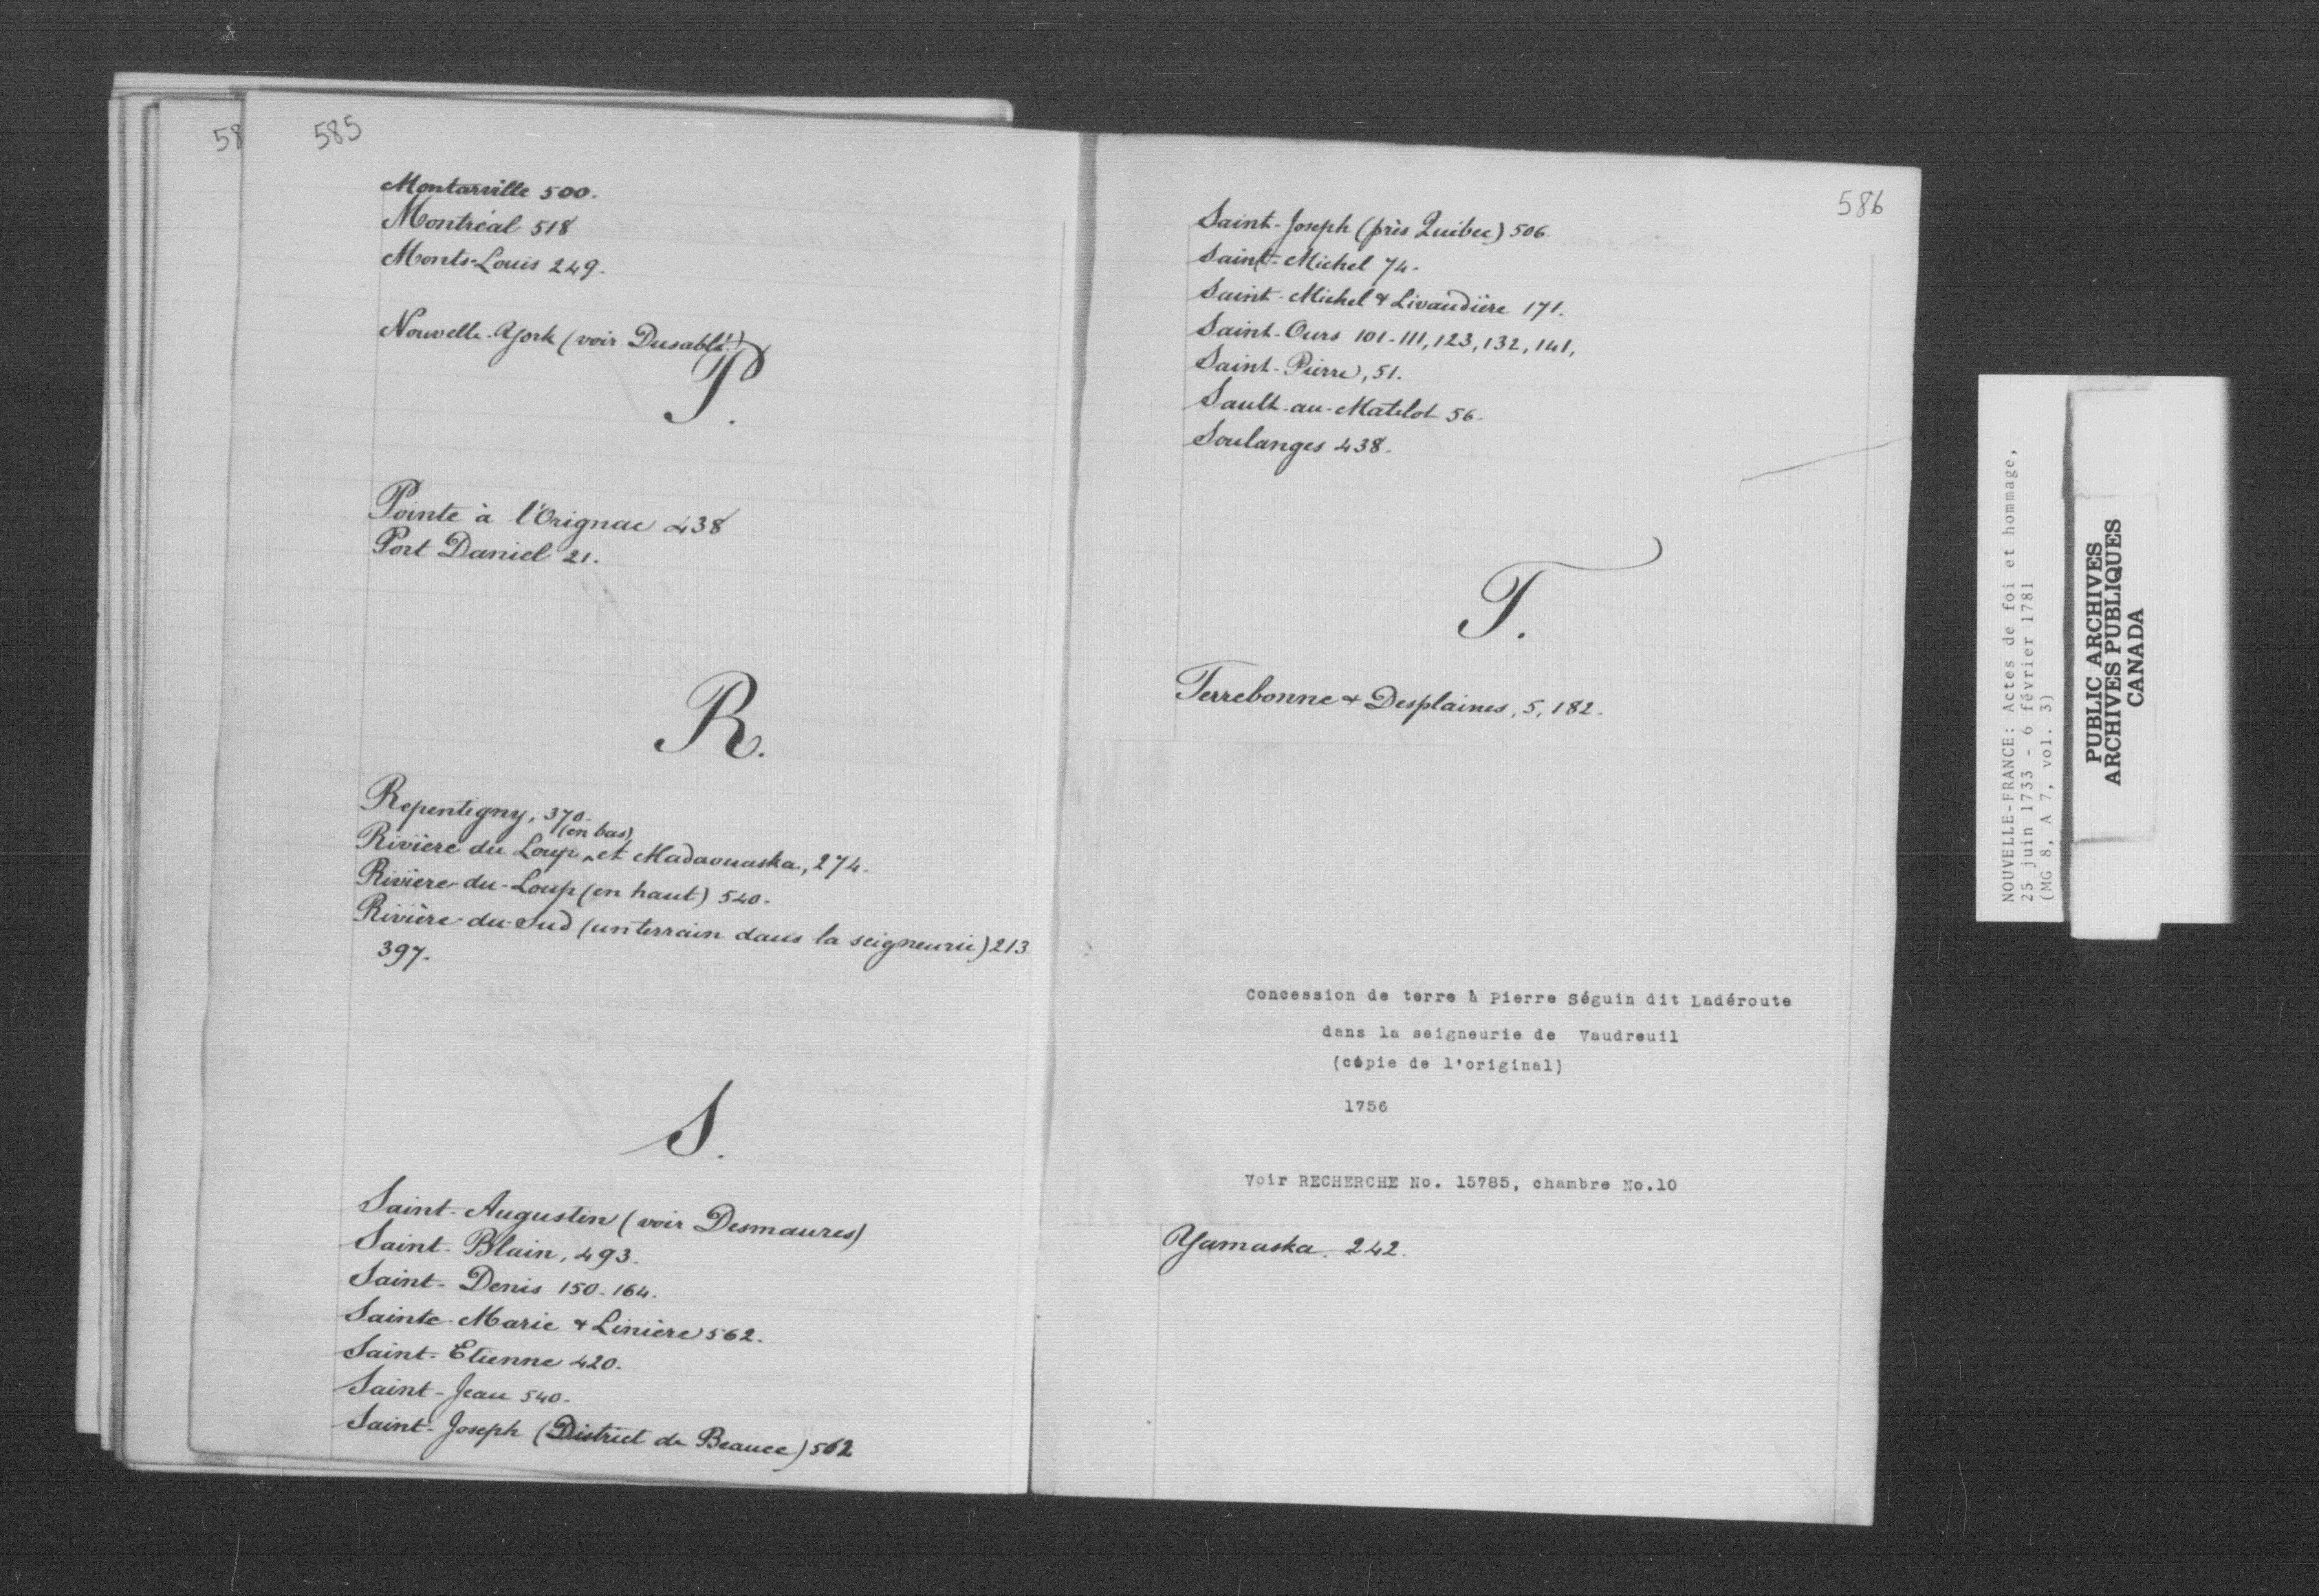 58
585
Montarville 500.
Montréal 518
Monts-Louis 249.
Nouvelle-York (voir Dusablé.)
P.
Pointe à l'Orignac 438
Port Daniel 21.
R.
Repentigny, 370.
(en bas)
Rivière du Loup ^ et Madaouaska, 274.
Rivière-du-Loup (en haut) 540.
Rivière-du-Sud (un terrain dans la seigneurie) 213
397.
S.
Saint-Augustin (voir Desmaures)
Saint-Blain, 493.
Saint-Denis 150-164.
Sainte-Marie & Linière 562.
Saint-Etienne 420.
Saint-Jean 540.
Saint-Joseph (District de Beauce) 562
586
Saint-Joseph (près Québec) 506.
Saint-Michel 74.
Saint-Michel & Livaudière 171.
Saint-Ours 101-111, 123, 132, 141,
Saint-Pierre, 51.
Sault-au-Matelot 56.
Soulanges 438.
T.
Terrebonne & Desplaines, 5, 182.
Concession de terre à Pierre Séguin dit Ladéroute
dans la seigneurie de Vaudreuil
(copie de l'original)
1756
Voir RECHERCHE No. 15785, chambre No.10
Yamaska. 242.
NOUVELLE-FRANCE: Actes de foi et hommage,
25 juin 1733 - 6 février 1781
(MG 8, A 7, vol. 3)
PUBLIC ARCHIVES
ARCHIVES PUBLIQUES
CANADA